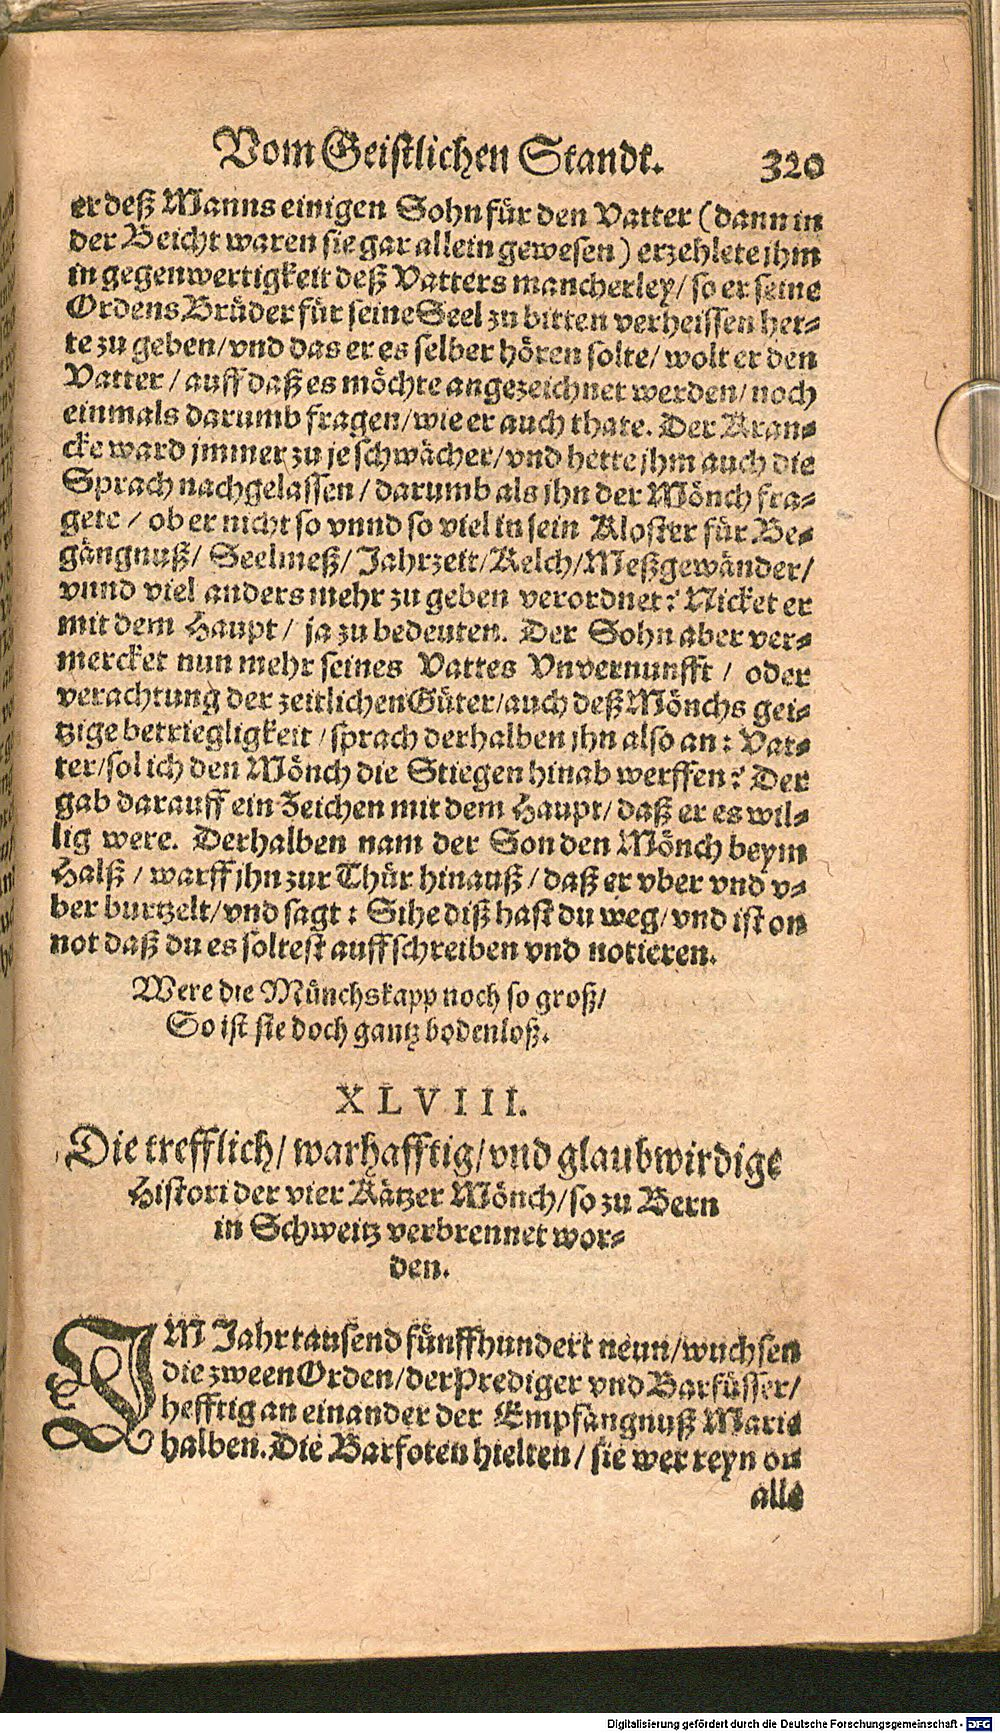 Vom Geistlichen Standt. 320
er deß Manns einigen Sohn für den Vatter (dann in
der Beicht waren sie gar allein gewesen) erzehlete jhm
in gegenwertigkeit deß Vatters mancherley/ so er seine
Ordens Brüder für seine Seel zu bitten verheissen het-
te zu geben/ vnd das er es selber hören solte/ wolt er den
Vatter / auff daß es möchte angezeichnet werden/ noch
einmals darumb fragen/ wie er auch thate. Der Kran-
cke ward jmmer zu je schwächer/ vnd hette jhm auch die
Sprach nachgelassen / darumb als jhn der Mönch fra-
gete / ob er nicht so vnnd so viel in sein Kloster für Be-
gängnuß/ Seelmeß/ Jahrzeit/ Kelch/ Meßgewänder/
vnnd viel anders mehr zu geben verordnet? Nicket er
mit dem Haupt/ ja zu bedeuten. Der Sohn aber ver-
mercket nun mehr seines Vattes Vnvernunfft / oder
verachtung der zeitlichen Güter/ auch deß Mönchs gei-
tzige betriegligkeit / sprach derhalben jhn also an: Vat-
ter/ sol ich den Mönch die Stiegen hinab werffen? Der
gab darauff ein Zeichen mit dem Haupt/ daß er es wil-
lig were. Derhalben nam der Son den Mönch beym
Halß / warff jhn zur Thür hinauß / daß er vber vnd v-
ber burtzelt/ vnd sagt: Sihe diß hast du weg/ vnd ist on
not daß du es soltest auffschreiben vnd notieren.
Were die Münchskapp noch so groß/
So ist sie doch gantz bodenloß.
XLVIII.
Die trefflich/ warhafftig/ vnd glaubwirdige
Histori der vier Kätzer Mönch/ so zu Bern
in Schweitz verbrennet wor-
den.
IM Jahr tausend fünffhundert neun/ wuchsen
die zween Orden/ der Prediger vnd Barfüsser/
hefftig an einander der Empfängnuß Marie
halben. Die Barfoten hielten / sie wer reyn on
alle
Digitalisierung gefördert durch die Deutsche Forschungsgemeinschaft - DFG